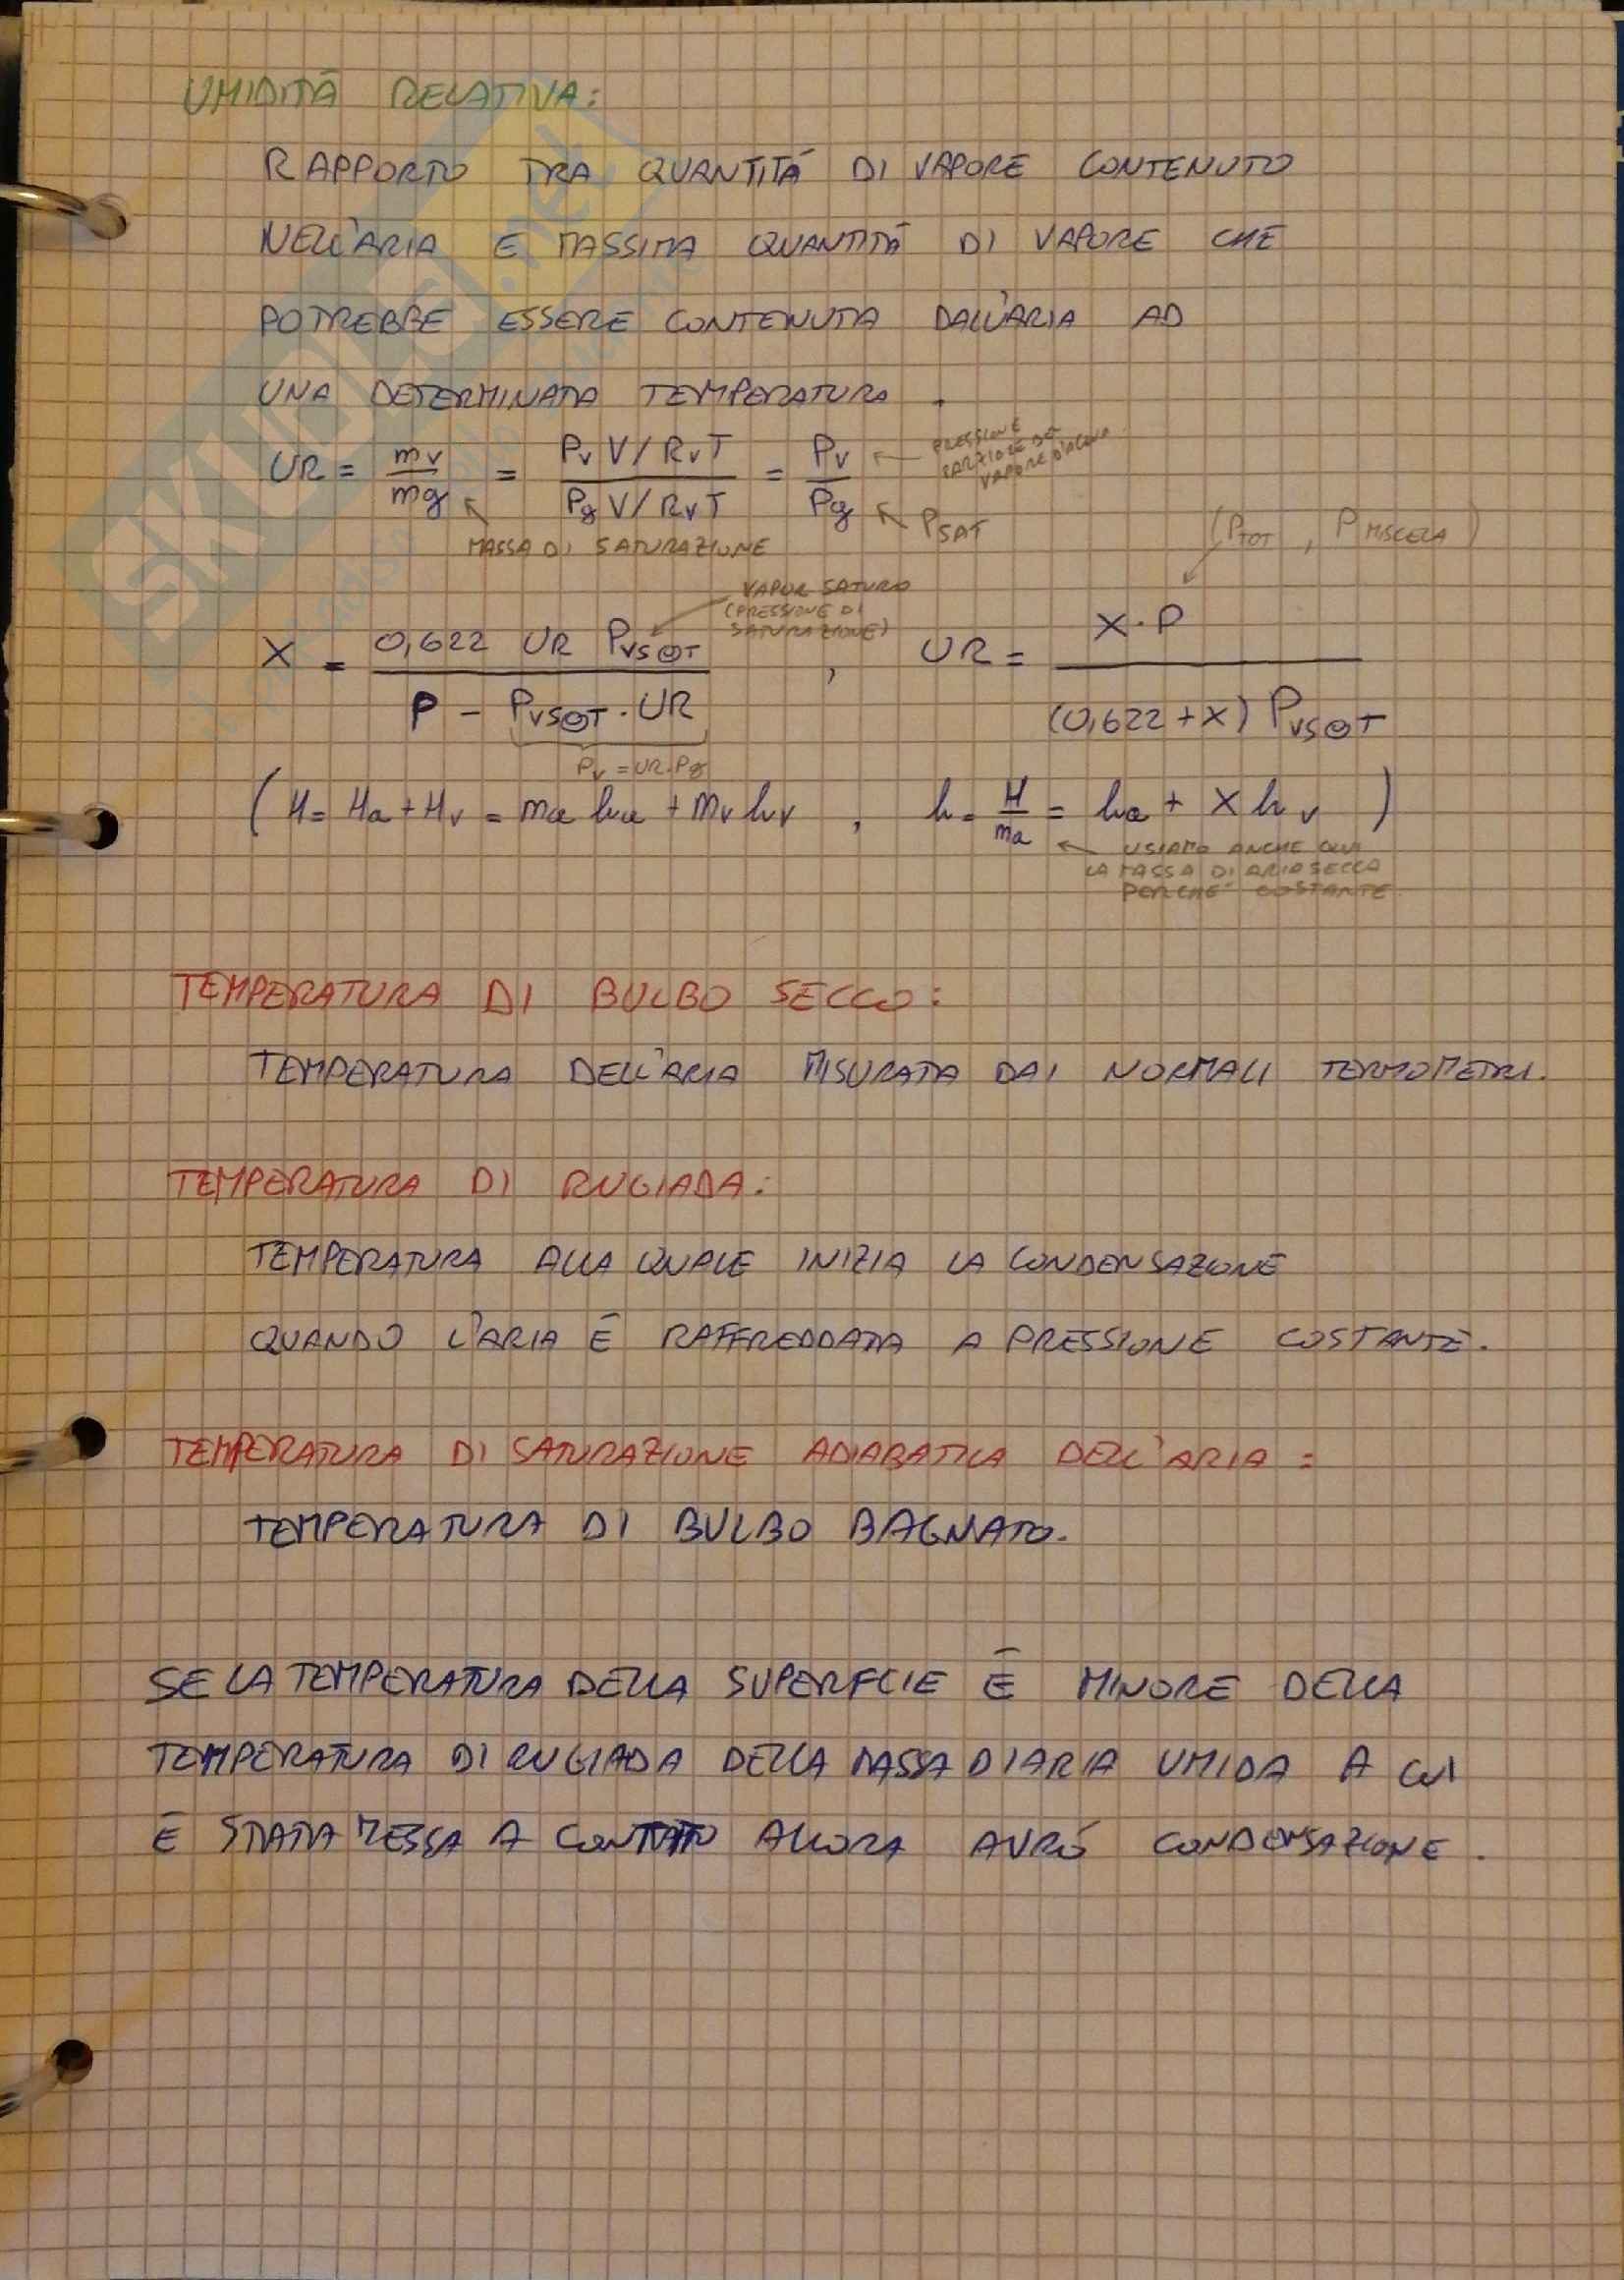 UMIDITÁ RELATIVA:
RAPPORTO TRA QUANTITÁ DI VAPORE CONTENUTO
NELL'ARIA E MASSIMA QUANTITÁ DI VAPORE CHE
POTREBBE ESSERE CONTENUTA DALL'ARIA AD
UNA DETERMINATA TEMPERATURA.
UR = mv/mg = (Pv V/RvT)/(Pg V/RvT) = Pv/Pg
PRESSIONE PARZIALE DEL VAPORE D'ACQUA
PSAT
MASSA DI SATURAZIONE
(PTOT, PMISCELA)
VAPOR SATURO (PRESSIONE DI SATURAZIONE)
X = (0,622 UR PVS@T)/(P - PVS@T · UR), UR = (X·P)/((0,622+X) PVS@T)
Pv = UR·Pg
(H = Ha + Hv = ma ha + mv hv, h = H/ma = ha + X hv)
USIAMO ANCHE QUI
LA MASSA DI ARIA SECCA
PERCHÉ COSTANTE
TEMPERATURA DI BULBO SECCO:
TEMPERATURA DELL'ARIA MISURATA DAI NORMALI TERMOMETRI.
TEMPERATURA DI RUGIADA:
TEMPERATURA ALLA QUALE INIZIA LA CONDENSAZIONE
QUANDO L'ARIA É RAFFREDDATA A PRESSIONE COSTANTE.
TEMPERATURA DI SATURAZIONE ADIABATICA DELL'ARIA:
TEMPERATURA DI BULBO BAGNATO.
SE LA TEMPERATURA DELLA SUPERFCIE É MINORE DELLA
TEMPERATURA DI RUGIADA DELLA MASSA DI ARIA UMIDA A CUI
É STATA MESSA A CONTATTO ALLORA AVRÓ CONDENSAZIONE.
SKUOLA.NET